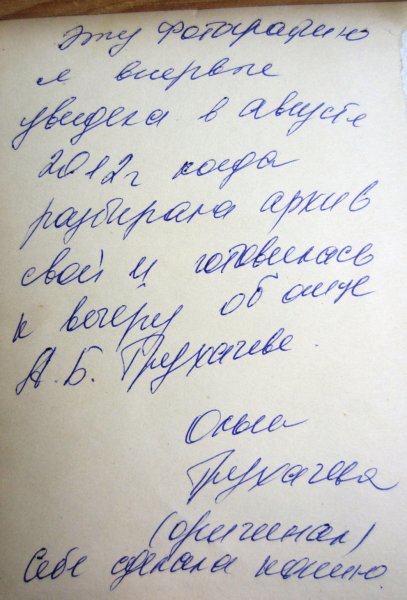 Эту фотографию
я впервые
увидела в августе
2012г когда
разбирала архив
свой и готовилась
к вечеру об отце
А.Б. Трухачеве.
Ольга
Трухачева
(оригинал)
Себе сделала копию